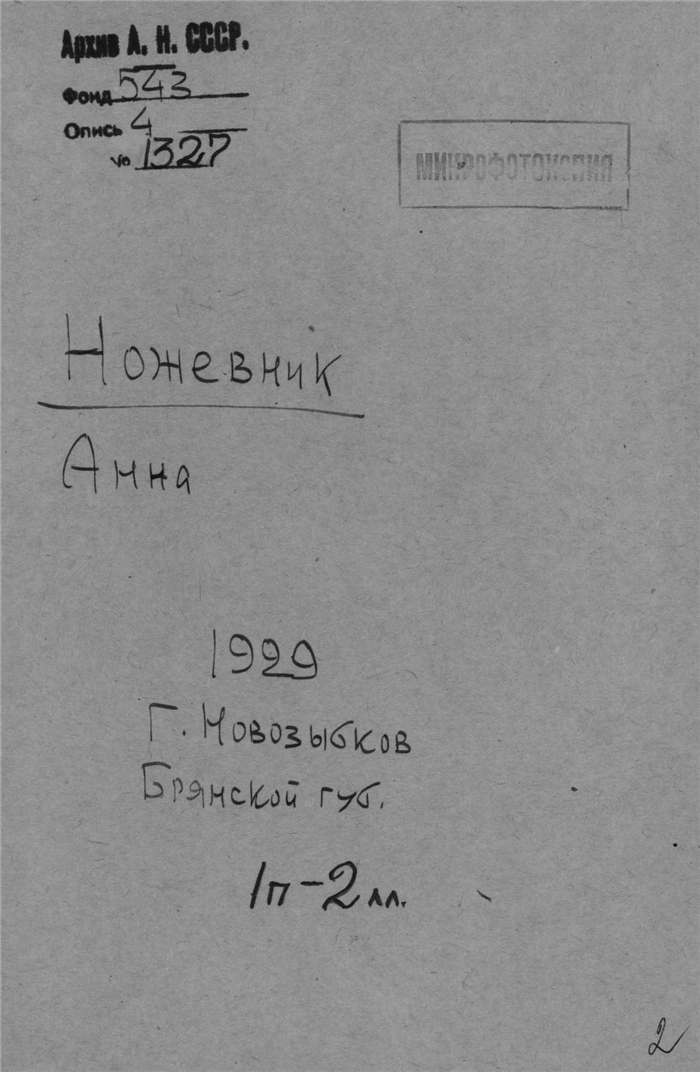 Архив А. Н. СССР.
Фонд 543
Опись 4
№ 1327
МИКРОФОТОКОПИЯ
Ножевник
Анна
1929
Г. Новозыбков
Брянской губ.
1п-2 лл.
2